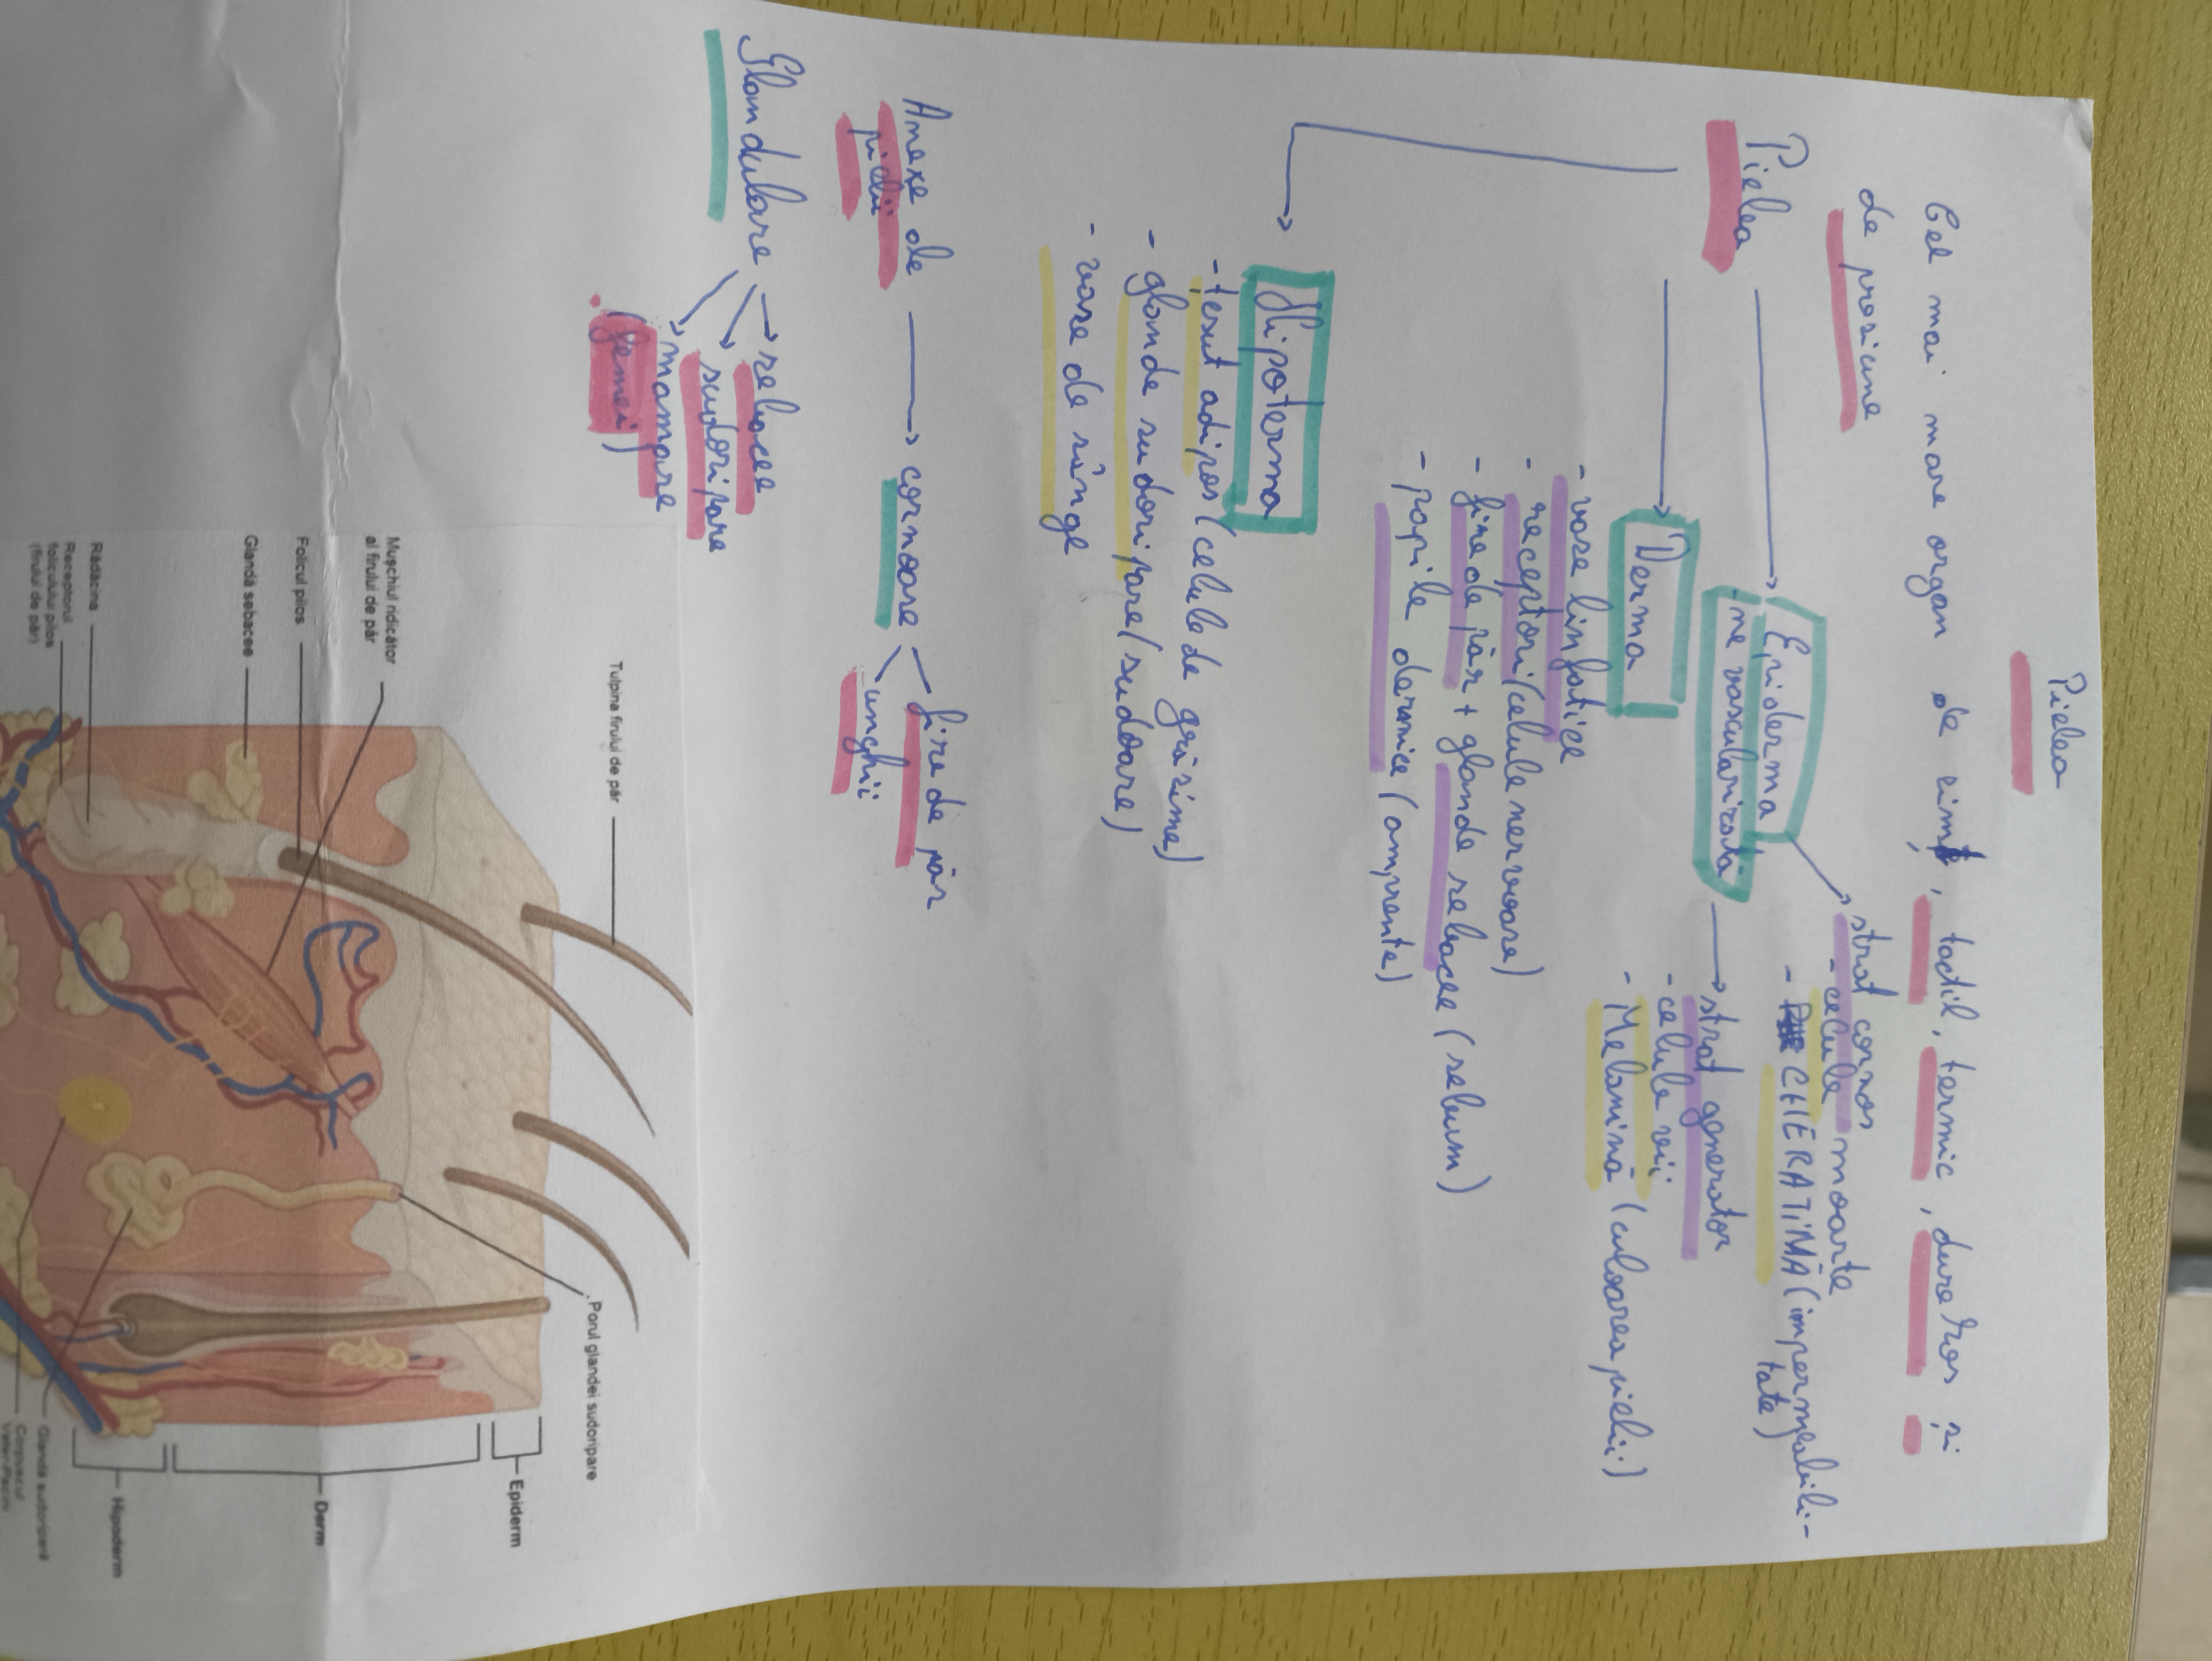 Pielea
Cel mai mare organ de simț, tactil, termic, dureros și
de presiune
Pielea
Epiderma
-ne vascularizată
strat cornos
- celule moarte
- CHERATINĂ (impermeabili-
tate)
strat generator
- celule vii
- Melanină (culoarea pielii)
Derma
- vase linfatice
- receptori (celule nervoase)
- fire de păr + glande sebacee (sebum)
- papile dermice (amprente)
Hipoterma
- țesut adipos (celule de grăsime)
- glande sudoripare (sudoare)
- vase de sânge
Anexe de
pielii
cornoase
fire de păr
unghii
Glandulare
sebacee
sudoripare
mampre
(femei)
Tulpina firului de păr
Porul glandei sudoripare
Mușchiul ridicător
al firului de păr
Folicul pilos
Glandă sebacee
Rădăcina
Receptorul
foliculului pilos
(firului de păr)
Epiderm
Derm
Hipoderm
Glandă sudoripară
Corpuscul
Vater-Pacini